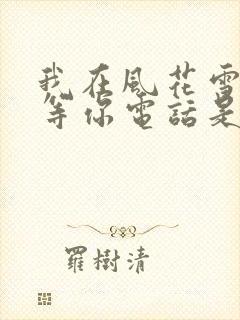 我在風花雪
等你電話是
羅樹清